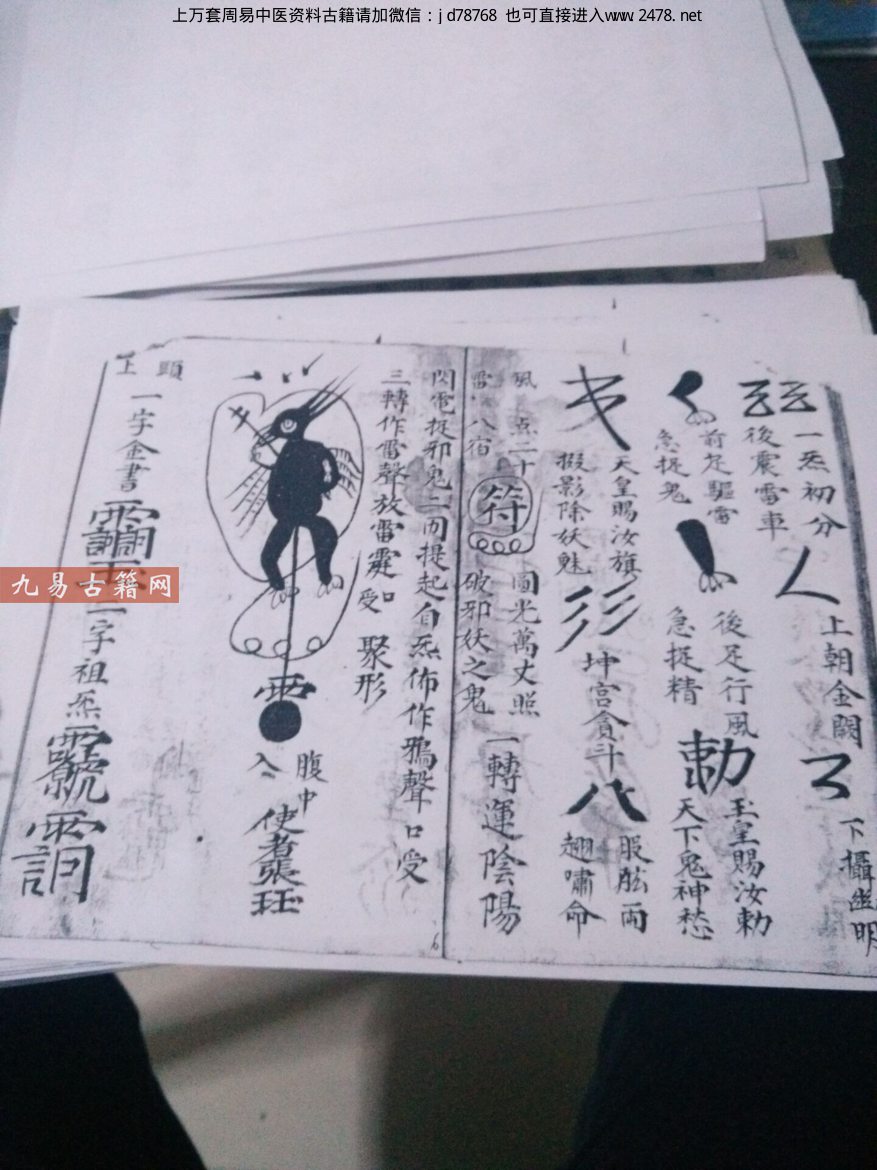 上万套周易中医资料古籍请加微信：jd78768 也可直接进入www.2478.net
一炁初分
後震雷車
人
上朝金闕
了
下攝幽明
前足驅雷
急捉鬼
後足行風
急捉精
勅
玉皇賜汝勅
天下鬼神愁
天皇賜汝旗
掇影除妖魅
坤宮貪斗
八
股肱雨
翅嘯命
風 点二十
雷 八宿
符
圓光萬丈照
破邪妖之鬼
一轉運陰陽
閃電捉邪鬼二回提起自炁佈作鴉聲口受
三轉作雷聲放雷霆口受
聚形
腹中
入
使者張珏
頭上
一字金書
玉二字祖炁
九易古籍网